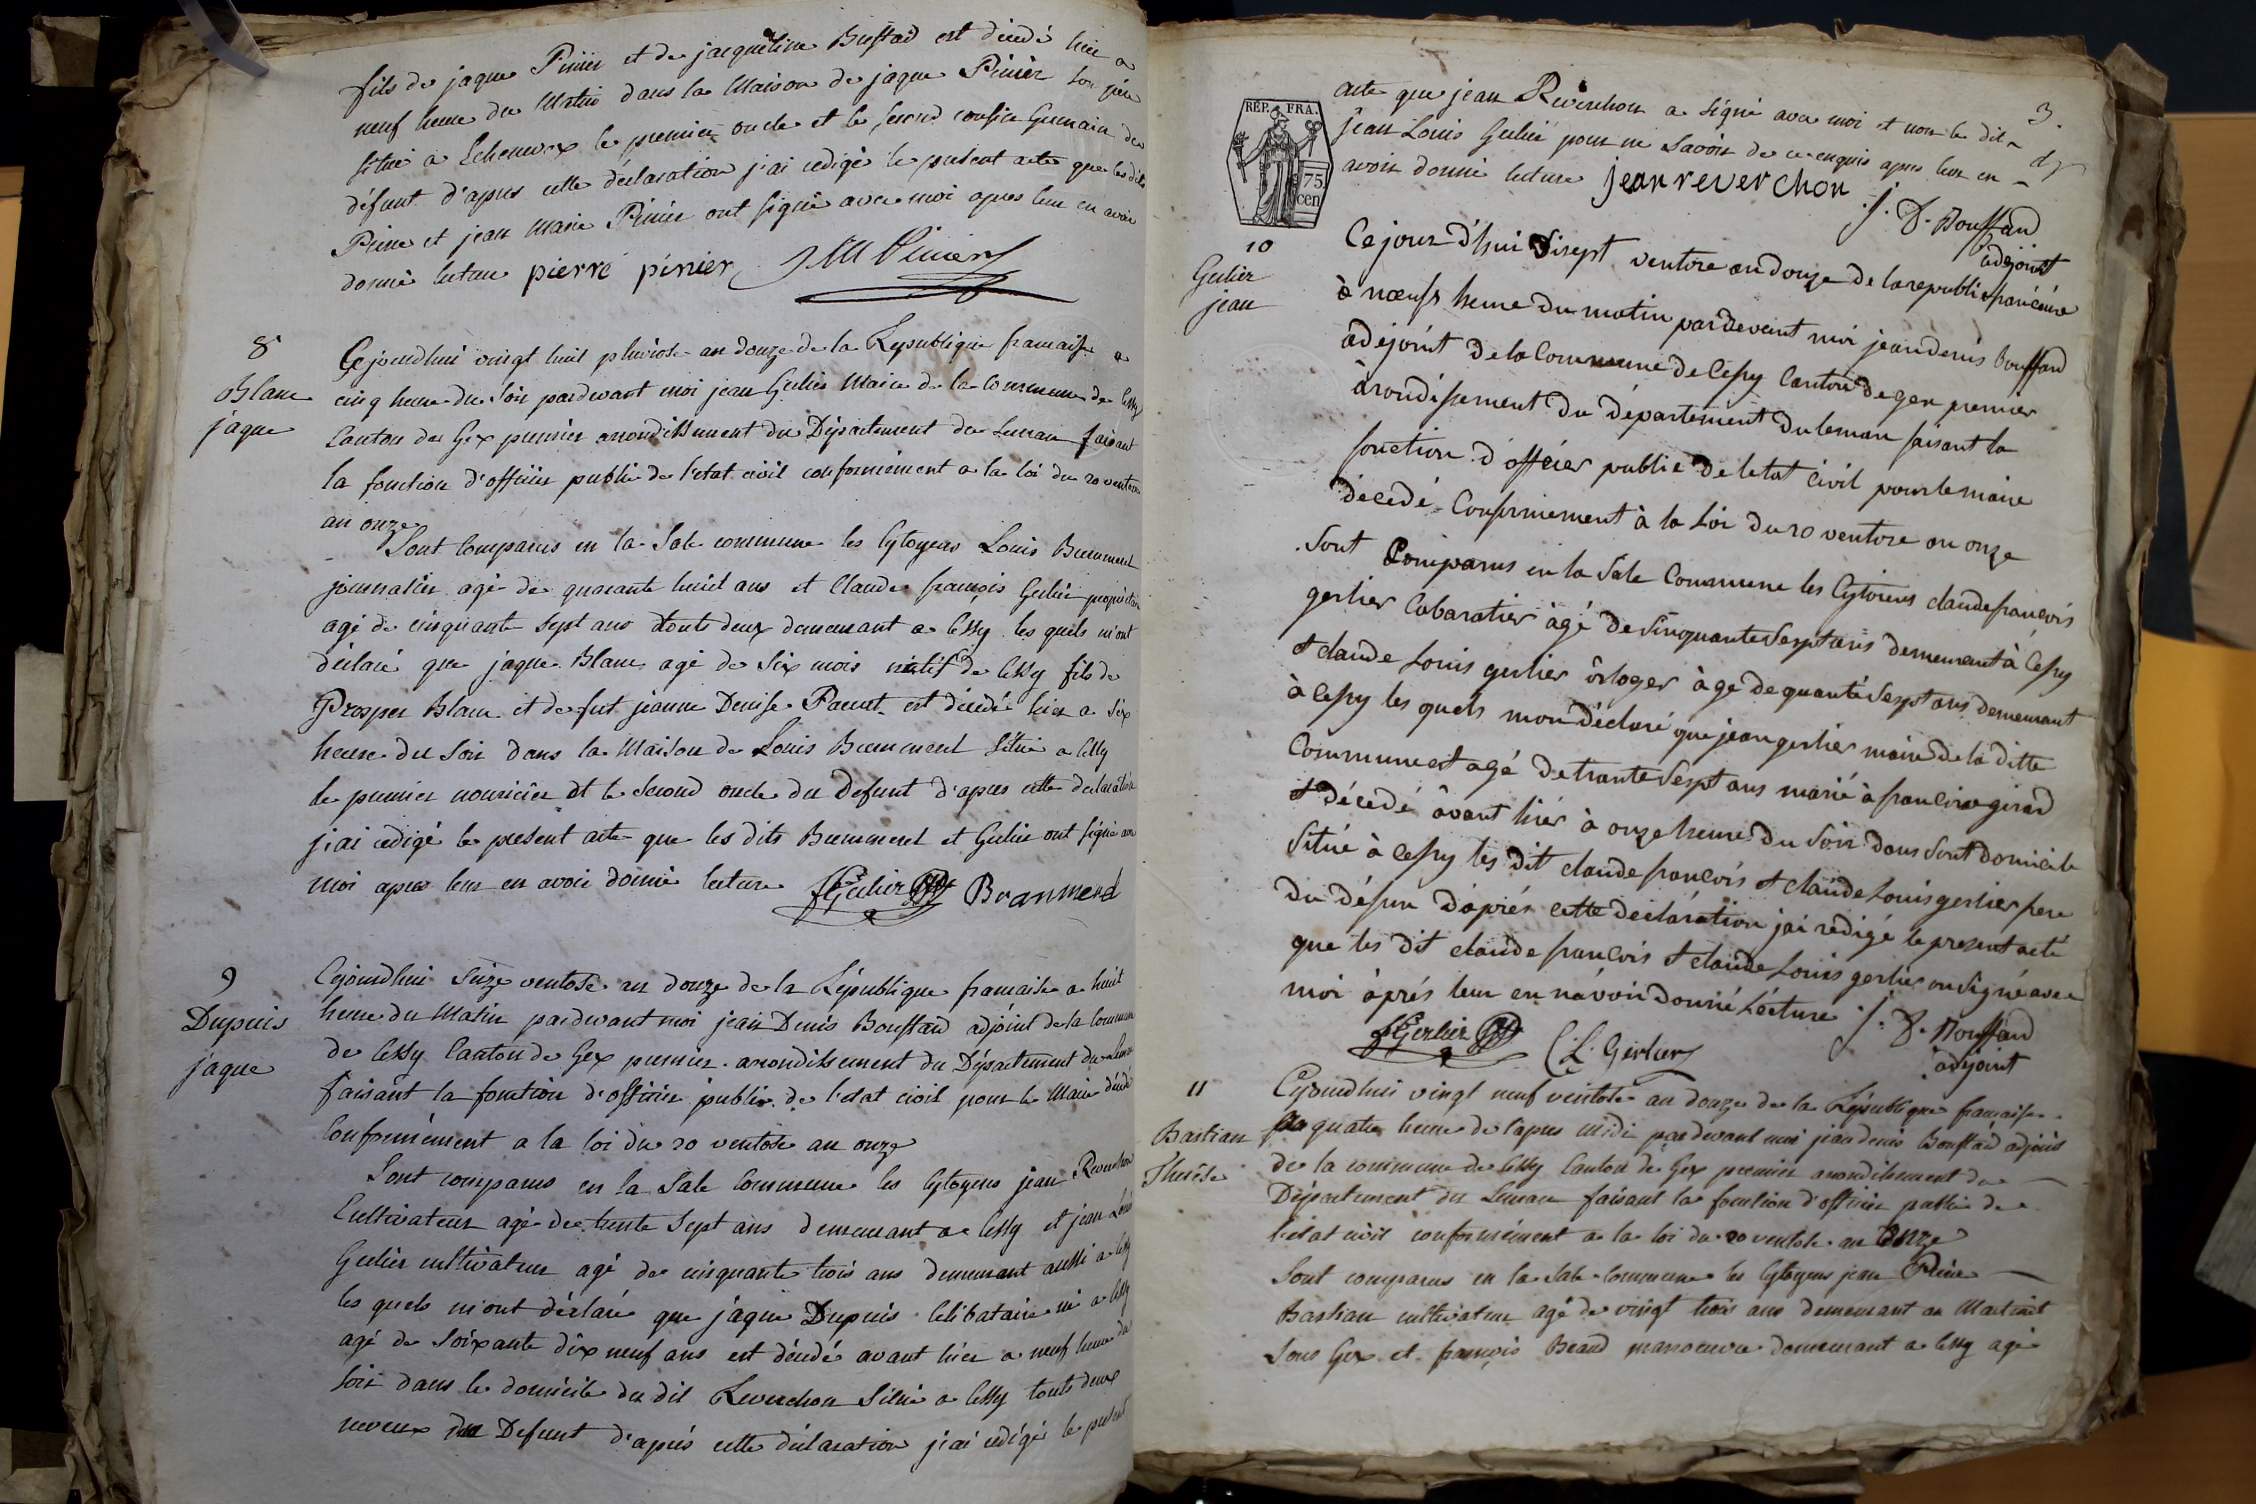 fils de jaque Pinier et de jacqueline Bustad est décédé hier a
neuf heure du Matin dans la Maison de jaque Pinier son père
situé a Echenvex le premier oncle et le second cousin Germain du
défunt d'apres cette déclaration j'ai redigé le présent acte que les dits
Pierre et jean Marie Pinier ont signé avec moi apres leur en avoir
donné lecture pierre pinier JM Pinier
8
Blanc
jaque
Cejourdhui vingt huit pluviose an douze de la République francaise a
cinq heure du soir pardevant moi jean Gerlier Maire de la Commune de Cessy
Canton de Gex premier arrondissement du Département du Leman faisant
la fonction d'officier public de l'état civil conformément a la loi du 20 ventose
an onze
Sont Comparus en la Sale commune les Cytoyens Louis
journalier agé de quarante huit ans et Claude françois Gerlier propriétaire
agé de cinquante sept ans touts deux demeurant a Cessy les quels m'ont
déclaré que jaque Blanc agé de Six mois natif de Cessy fils de
Prosper Blanc et de fut jeanne Denise est décédé hier a Six
heure du Soir dans la Maison de Louis situé a Cessy
le premier nouricier et le Second oncle du Defunt d'apres cette declaration
j'ai redigé le présent acte que les dits et Gerlier ont signé avec
moi apres leur en avoir donné lecture Gerlier Branmend
9
Dupuis
jaque
Cejourdhui Seize ventose an douze de la République francaise a huit
heure du Matin pardevant moi jean Denis Bouffard adjoint de la Commune
de Cessy Canton de Gex premier arrondissement du Département du Leman
faisant la fonction d'officier public de l'etat civil pour le Maire décédé
Conformément a la loi du 20 ventose an onze
Sont comparus en la Sale Commune les Cytoyens jean Reverchon
Cultivateur agé de trente Sept ans demeurant a Cessy et jean Louis
Gerlier cultivateur agé de cinquante trois ans demeurant aussi a Cessy
les quels m'ont déclaré que jaque Dupuis Célibataire né a Cessy
agé de Soixante dix neuf ans est décédé avant hier a neuf heure du
soir dans le domicile du dit Reverchon Situé a Cessy touts deux
neveux du Defunt d'aprés cette déclaration j'ai redigé le présent
3.
acte que jean Reverchon a signé avec moi et non le dit
jean Louis Gerlier pour ne Savoir de ce enquis apres leur en
avoir donné lecture jean reverchon J. D. Bouffard
adjoint
REP. FRA.
75
cen
10
Gerlier
jean
Ce jour d'hui Disept ventose an douze de la republi francaise
à noeufs heure du matin pardevant moi jean denis bouffard
adejoint de la Commune de Cessy Canton de gex premier
àrondissement du département du leman faisant la
fonction d'officier public de letat civil pour le maire
décedé Confirmement à la loi du 20 ventose an onze
Sont Comparus en la Sale Commune les Cytoiens claude francois
gerlier Cabaratier àgé de Sinquante Sept ans demeurant à Cessy
et claude Louis gerlier òrloger àgé de quarante Sept ans demeurant
à Cessy les quels mon déclaré que jean gerlier maire de la ditte
Commune et agé de trante Sept ans marié à francoise girard
et décedé âvant hier à onze heure du Soir dans Sont domicile
Situé à Cessy les dit claude francois et claude Louis gerlier frere
du défun d'aprés cette declaration jai redigé le present acte
que les dit claude francois et claude Louis gerlier on Signé avec
moi àprés leur en navoir donné Lécture J. D. Bouffard
adjoint
Gerlier C. L. Gerlier
11
Bastian
Therése
Cejourdhui vingt neuf ventose an douze de la République francaise
a quatre heure de l'apres midi pardevant moi jean denis Bouffard adjoint
de la commune de Cessy Canton de Gex premier arrondissement du
Département du Leman faisant la fonction d'officier public de
l'etat civil conformément a la loi du 20 ventose an onze
Sont comparus en la Sale commune les Cytoyens jean Pierre
Bastian cultivateur agé de vingt trois ans demeurant au Martinet
Sous Gex et françois Beaud manoeuvre demeurant a Cessy agé